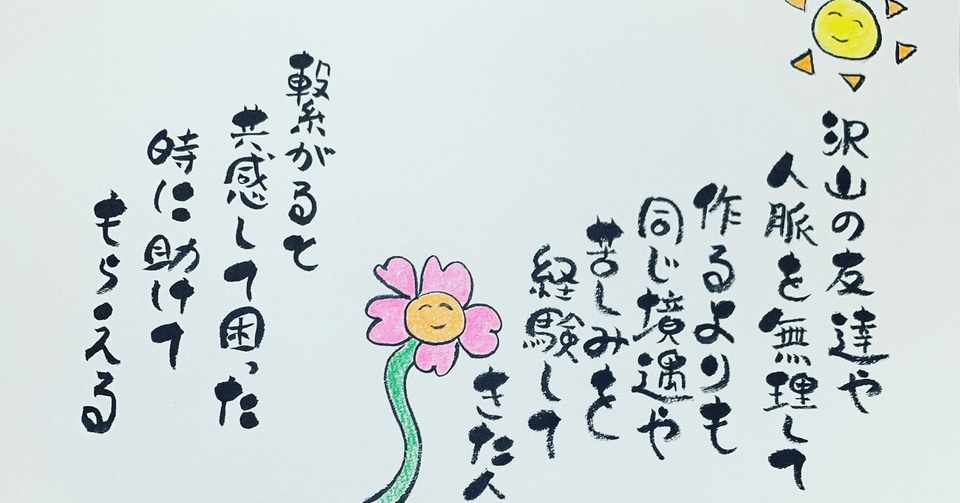 沢山の友達や
人脈を無理して
作るよりも
同じ境遇や
苦しみを
経験して
きた人
繋がると
共感して困った
時に助けて
もらえる